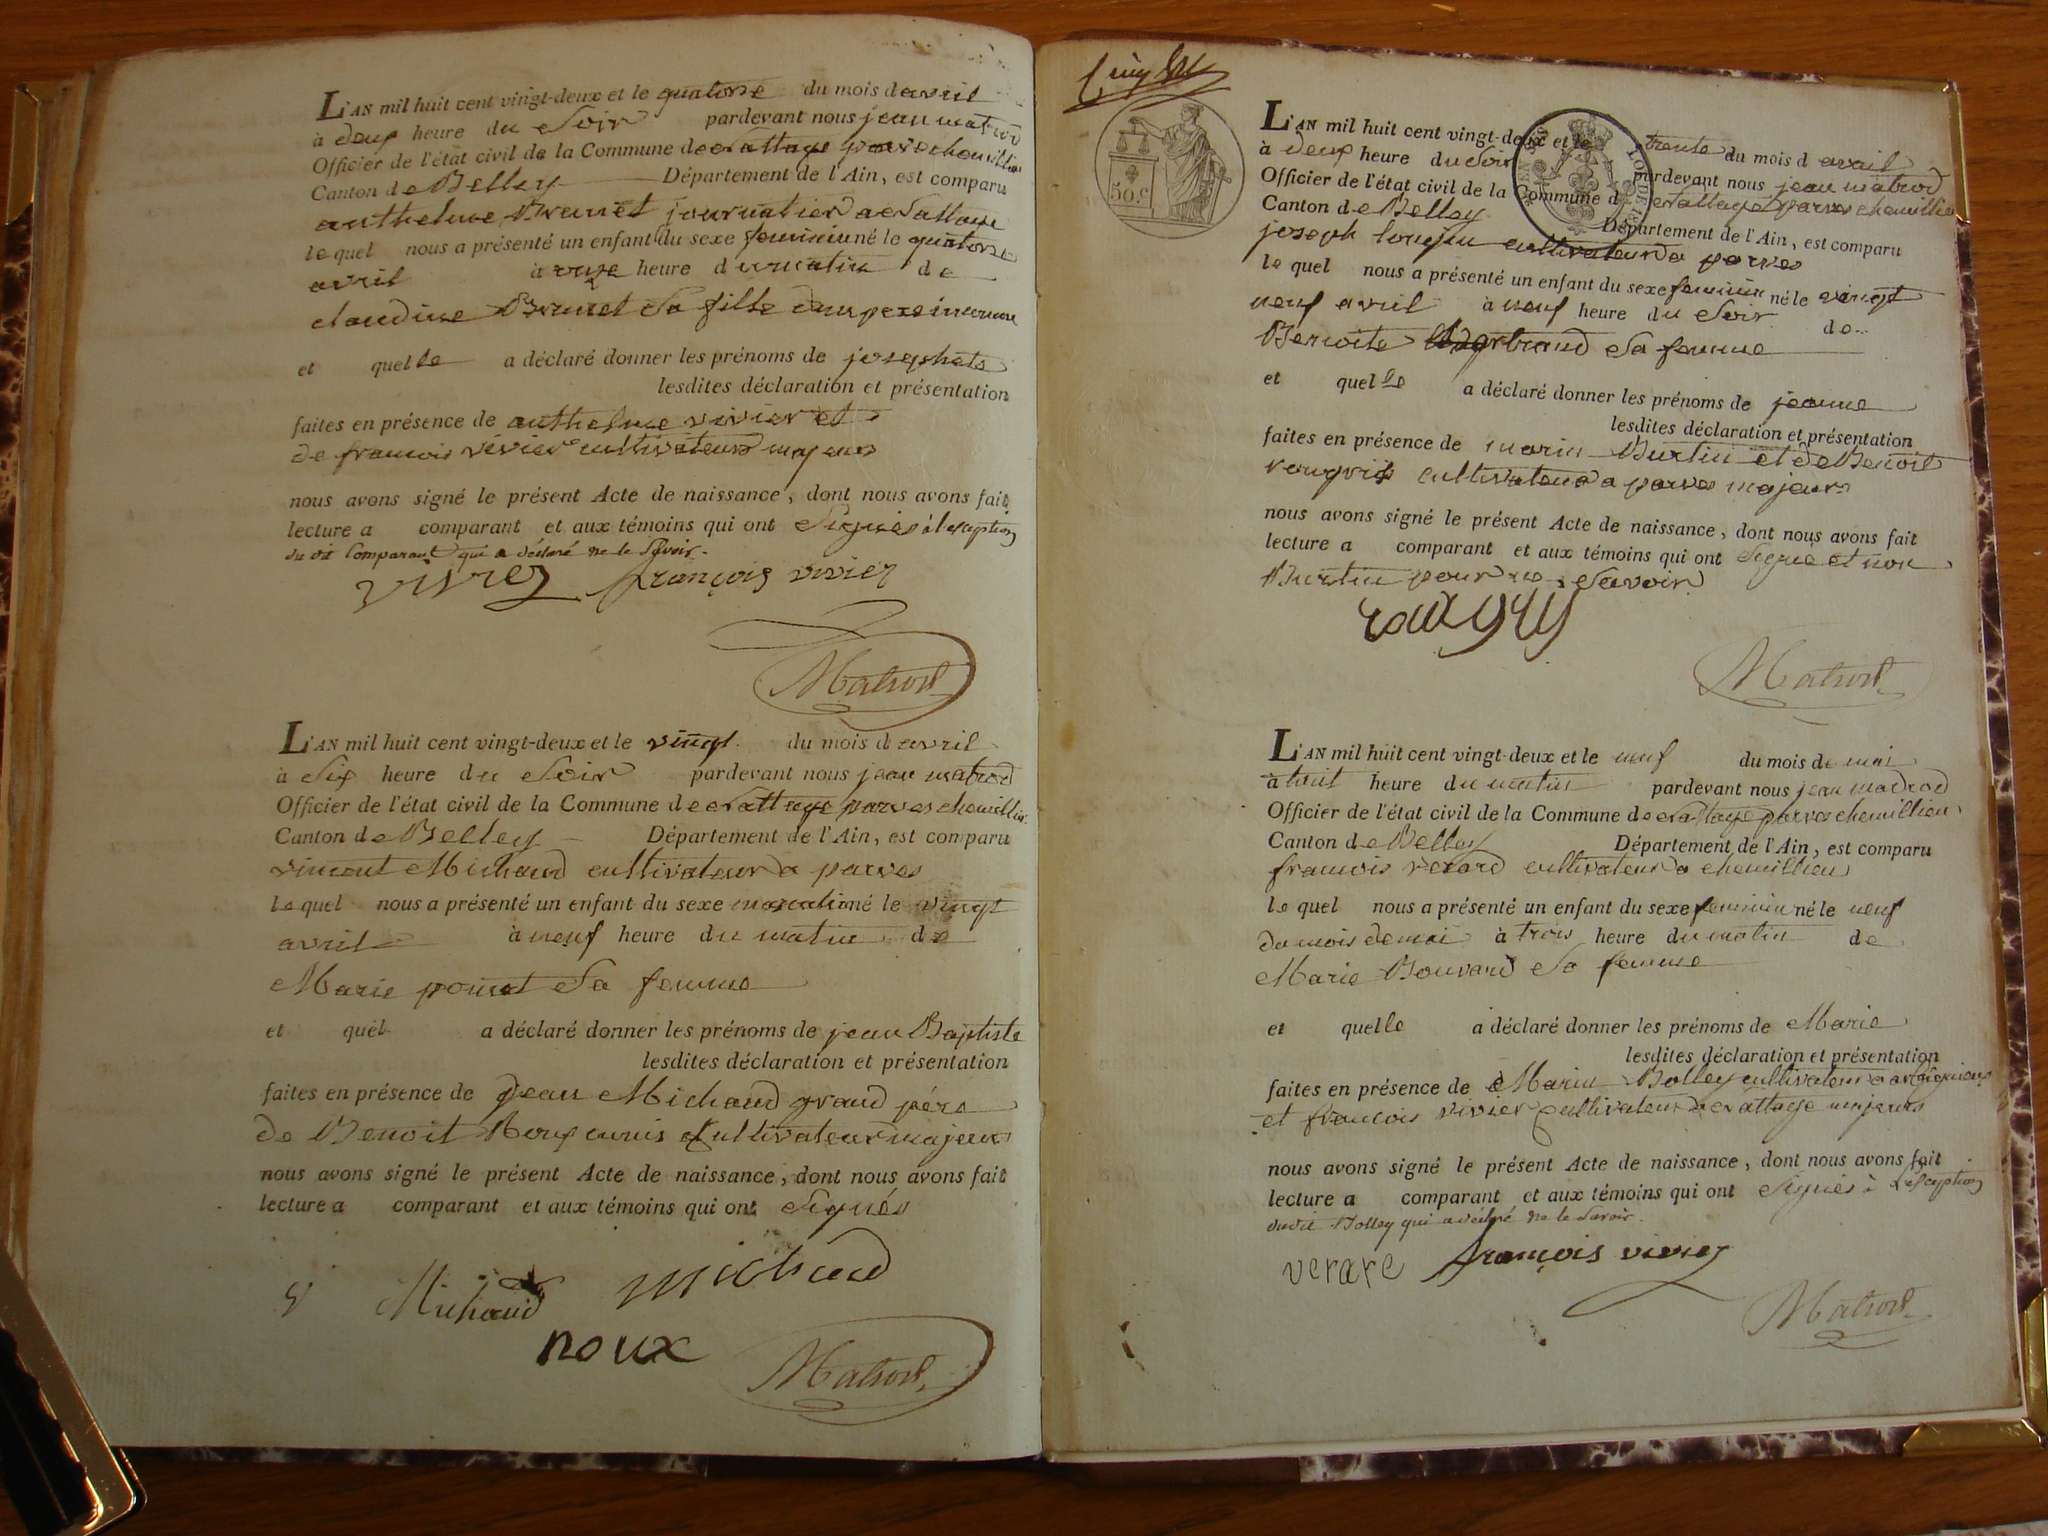 L'AN mil huit cent vingt-deux et le quatorse du mois d avril
à deux heure du Soir pardevant nous jean matrod
Officier de l'état civil de la Commune de parves
Canton de Belley Département de l'Ain, est comparu
anthelme Brunet journalier a
le quel nous a présenté un enfant du sexe feminin né le quatorse
avril à onze heure du matin de
claudine Brunet Sa fille dun pere inconnu
et quelle a déclaré donner les prénoms de josephete
lesdites déclaration et présentation
faites en présence de anthelme vivier et
de francois vivier cultivateurs majeurs
nous avons signé le présent Acte de naissance, dont nous avons fait
lecture a comparant et aux témoins qui ont Signés à l'exception
du dit Comparant qui a déclaré ne le Savoir.
vivier françois vivier
Matrod
L'AN mil huit cent vingt-deux et le vingt du mois d avril
à Six heure du Soir pardevant nous jean matrod
Officier de l'état civil de la Commune de parves
Canton de Belley Département de l'Ain, est comparu
vincent Michaud cultivateur a parves
le quel nous a présenté un enfant du sexe masculin né le vingt
avril à neuf heure du matin de
Marie Sa femme
et quel a déclaré donner les prénoms de jean Baptiste
lesdites déclaration et présentation
faites en présence de Jean Michaud grand père
de Benoit Cultivateur majeur
nous avons signé le présent Acte de naissance, dont nous avons fait
lecture a comparant et aux témoins qui ont Signés
V Michaud michaud
noux
Matrod
50.c
L'AN mil huit cent vingt-deux et le trente du mois d avril
à deux heure du Soir pardevant nous jean matrod
Officier de l'état civil de la Commune d parves
Canton de Belley Département de l'Ain, est comparu
joseph cultivateur a parves
le quel nous a présenté un enfant du sexe feminin né le vingt
neuf avril à neuf heure du Soir de
Benoite Sa femme
et quelle a déclaré donner les prénoms de jeanne
lesdites déclaration et présentation
faites en présence de marin Burtin et de Benoit
cultivateur a parves majeurs
nous avons signé le présent Acte de naissance, dont nous avons fait
lecture a comparant et aux témoins qui ont Signé et non
Burtin pour ne Savoir
Matrod
L'AN mil huit cent vingt-deux et le neuf du mois de mai
à huit heure du matin pardevant nous jean madrod
Officier de l'état civil de la Commune de parves
Canton de Belley Département de l'Ain, est comparu
francois cultivateur a chemillieu
le quel nous a présenté un enfant du sexe feminin né le neuf
du mois de mai à trois heure du matin de
Marie Bouvard Sa femme
et quelle a déclaré donner les prénoms de Marie
lesdites déclaration et présentation
faites en présence de Marin Bolley cultivateur a
et francois vivier cultivateur majeurs
nous avons signé le présent Acte de naissance, dont nous avons fait
lecture a comparant et aux témoins qui ont Signés à l'exception
dudit Bolley qui a déclaré ne le Savoir.
verare françois vivier
Matrod